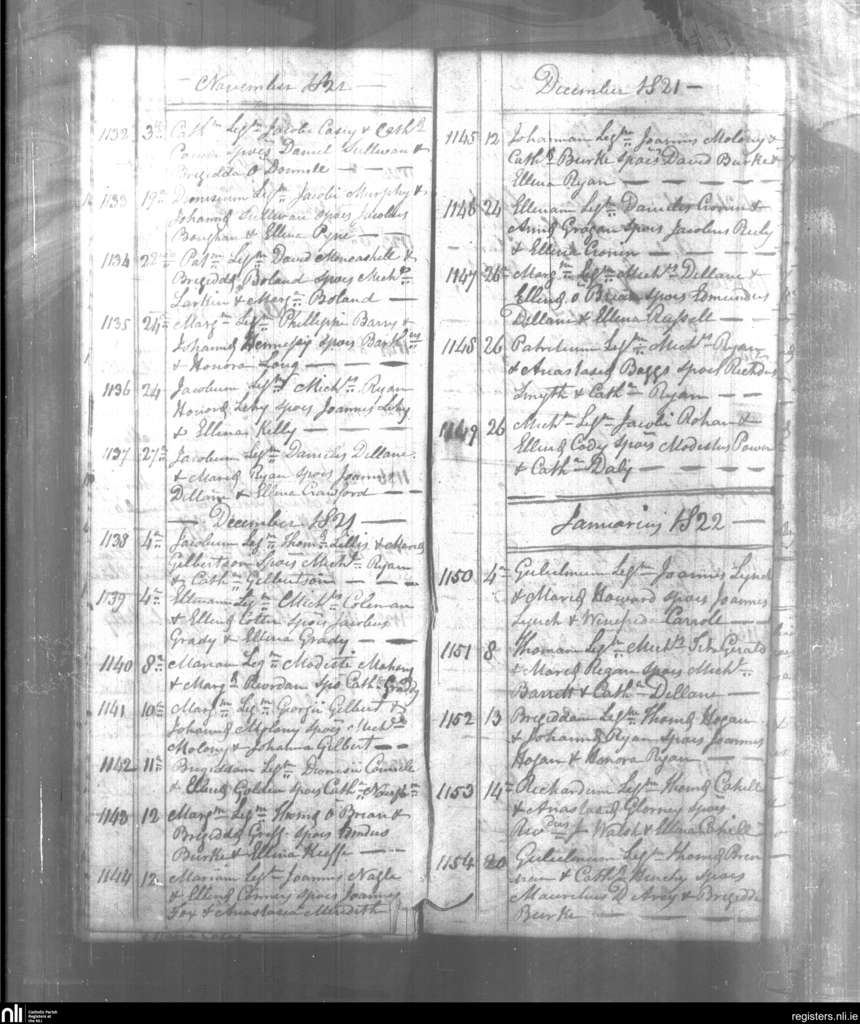 November 1821
1132 3 Cathm Legtm Jacobi Casey & Cathæ
Power spors Daniel Sullivan &
Brigidda O Donnell
1133 19 Dionisium Legtm Jacobi Murphy &
Johannæ Sullivan spors Jacobus
Baughan & Ellena Pyne
1134 Patm Legtm David &
Brigiddæ Boland spors Michs
Larkin & Margta Boland
1135 24 Margm Legtm Phillippi Barry &
Johannæ Hennessy spors
& Honora Long
1136 24 Jacobum Legtm Michls Ryan
Honoræ Lehy spors Joannes Lehy
& Ellenas Kelly
1137 27 Jacobum Legtm Danielis Dellane
& Mariæ Ryan spors Joannes
Dillane & Ellena Crawford
December 1821
1138 4 Jacobum Legtm Thomæ Lillis & Mariæ
Gilbertson spors Michl Ryan
& Cathna Gilbertson
1139 4 Ellenam Legtm Michls Coleman
& Ellenæ Cotter spors Jacobus
Grady & Ellena Grady
1140 8 Mariam Legtm Modesti Mahony
& Margæ Riordan spo Cathna Grady
1141 10 Margm Legtm Georgii Gilbert &
Johannæ Molony spors Michs
Molony & Johanna Gilbert
1142 11 Brigiddam Legtm Dionisii Connell
& Ellenæ Golden spors Cathna
1143 12 Margm Legtm Thomæ O Brian &
Brigiddæ spors
Burke & Ellena Keeffe
1144 12 Mariam Legtm Joannis Nagle
& Ellenæ Connors spors Joannes
Fox & Anastasia Meridith
December 1821
1145 12 Johannam Legtm Joannis Molony &
Cathæ Burke spors David Burke &
Ellena Ryan
1146 24 Ellenam Legtm Danielis Cronin &
Annæ Grogan spors Jacobus
& Ellena Cronin
1147 26 Margm Legtm Michls Dellane &
Ellenæ O Brian spors Edmundus
Dellane & Ellena Russell
1148 26 Patritium Legtm Michls Ryan
& Anastasiæ Boggs spors Richdus
Smyth & Cathna Ryan
1149 26 Michl Legtm Jacobi Rohan &
Ellenæ Cody spors Modestus Power
& Cathna Daly
Januarius 1822
1150 4 Gulielmum Legtm Joannis Lynch
& Mariæ Howard spors Joannes
Lynch & Winefreda Carroll
1151 8 Thomam Legtm Michls Fitz Gerald
& Mariæ Regan spors Michl
Barrett & Cathna Dellane
1152 13 Brigiddam Legtm Thomæ Hogan
& Johannæ Ryan spors Joannes
Hogan & Honora Ryan
1153 14 Richardum Legtm Thomæ Cahill
& Anastasiæ Glorney spors
Revdus J Walsh & Ellena Cahill
1154 20 Gulielmum Legtm Thomæ Bren
nan & Cathæ spors
Mauritius D Arcy & Brigidda
Burke
nli
Catholic Parish
Registers at
the NLI
registers.nli.ie